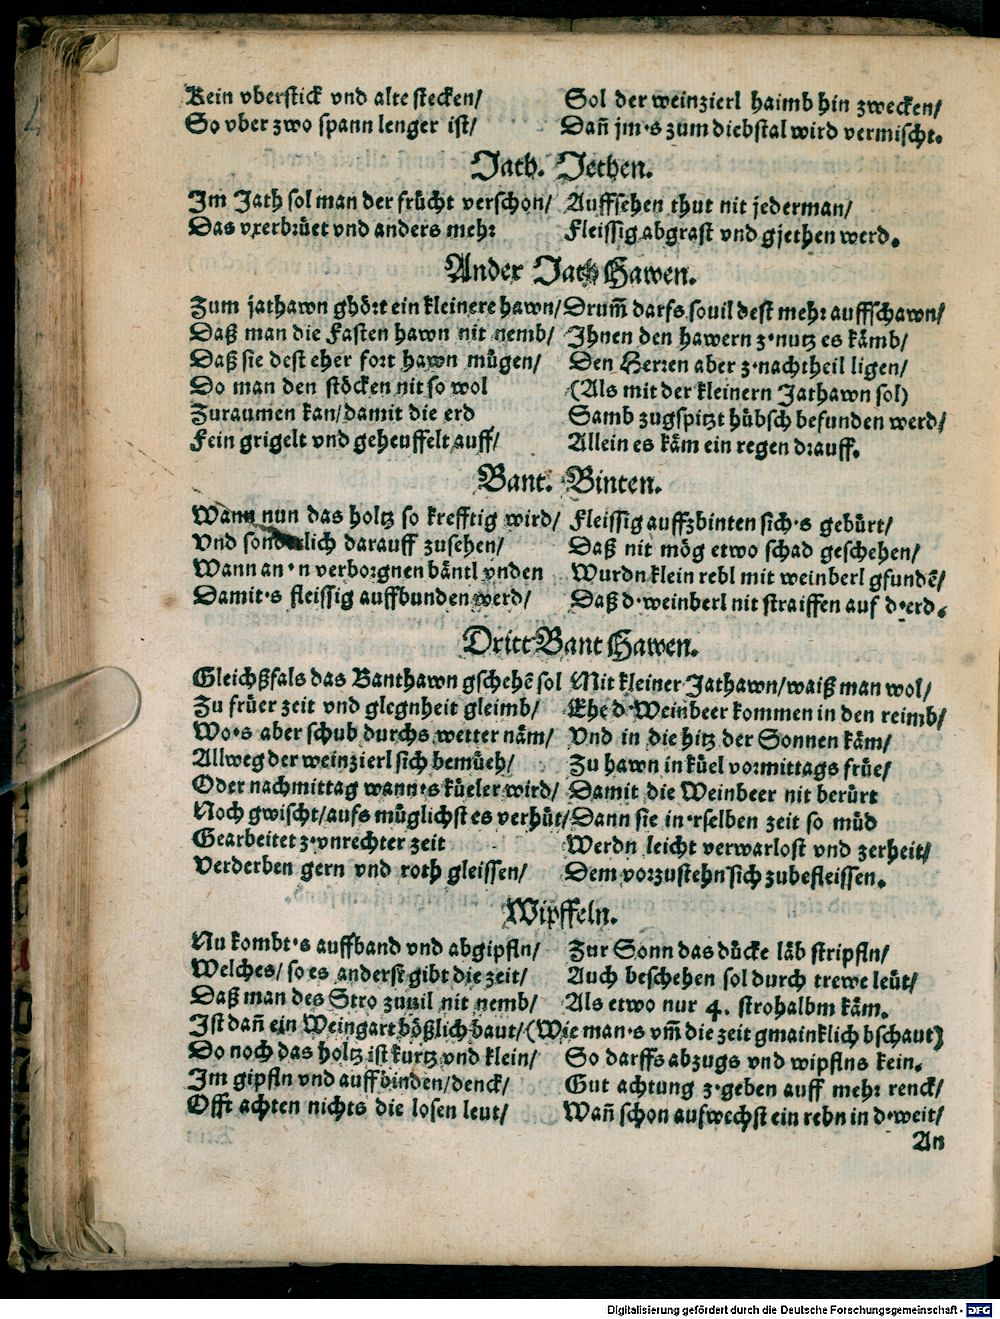 Kein vberstick vnd alte stecken/ Sol der weinzierl haimb hin zwecken/
So vber zwo spann lenger ist/ Dañ jm's zum diebstal wird vermischt.
Jath. Jethen.
Im Jath sol man der frücht verschon/ Auffsehen thut nit jederman/
Das vxerbrüet vnd anders mehr Fleissig abgrast vnd gjethen werd.
Ander Jath Hawen.
Zum jathawn ghört ein kleinere hawn/ Drum̃ darfs souil dest mehr auffschawn/
Daß man die Fasten hawn nit nemb/ Ihnen den hawern z'nutz es kämb/
Daß sie dest eher fort hawn mügen/ Den Herren aber z'nachtheil ligen/
Do man den stöcken nit so wol (Als mit der kleinern Jathawn sol)
Zuraumen kan/ damit die erd Samb zugspitzt hübsch befunden werd/
Fein grigelt vnd geheuffelt auff/ Allein es käm ein regen drauff.
Bant. Binten.
Wann nun das holtz so krefftig wird/ Fleissig auffzbinten sich's gebürt/
Vnd sonderlich darauff zusehen/ Daß nit mög etwo schad geschehen/
Wann an'n verborgnen bäntl vnden Wurdn klein rebl mit weinberl gfundẽ/
Damit's fleissig auffbunden werd/ Daß d'weinberl nit straiffen auf d'erd.
Dritt Bant Hawen.
Gleichßfals das Banthawn gschehẽ sol Mit kleiner Jathawn/ waiß man wol/
Zu früer zeit vnd glegnheit gleimb/ Ehe d'Weinbeer kommen in den reimb/
Wo's aber schub durchs wetter näm/ Vnd in die hitz der Sonnen käm/
Allweg der weinzierl sich bemüeh/ Zu hawn in küel vormittags früe/
Oder nachmittag wann's küeler wird/ Damit die Weinbeer nit berürt
Noch gwischt/ aufs müglichst es verhüt/ Dann sie in'rselben zeit so müd
Gearbeitet z'vnrechter zeit Werdn leicht verwarlost vnd zerheit/
Verderben gern vnd roth gleissen/ Dem vorzustehn sich zubefleissen.
Wipffeln.
Nu kombt's auffband vnd abgipfln/ Zur Sonn das dücke läb stripfln/
Welches/ so es anderst gibt die zeit/ Auch beschehen sol durch trewe leüt/
Daß man des Stro zuuil nit nemb/ Als etwo nur 4. strohalbm käm.
Ist dañ ein Weingart hößlich baut/ (Wie man's vm̃ die zeit gmainklich bschaut)
Do noch das holtz ist kurtz vnd klein/ So darffs abzugs vnd wipflns kein.
Im gipfln vnd auffbinden/ denck/ Gut achtung z'geben auff mehr renck/
Offt achten nichts die losen leut/ Wañ schon aufwechst ein rebn in d'weit/
An
Digitalisierung gefördert durch die Deutsche Forschungsgemeinschaft - DFG